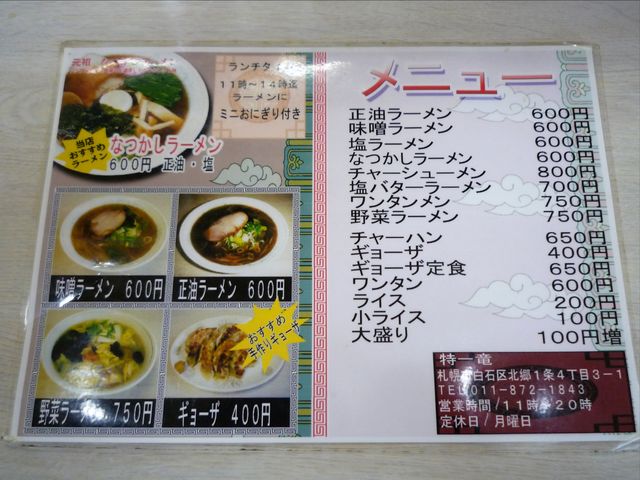 元祖
ランチタイム
11時～14時迄
ラーメンに
ミニおにぎり付き
当店
おすすめ
ラーメン
なつかしラーメン
600円 正油・塩
味噌ラーメン 600円
正油ラーメン 600円
おすすめ
手作りギョーザ
野菜ラーメン 750円
ギョーザ 400円
メニュー
正油ラーメン 600円
味噌ラーメン 600円
塩ラーメン 600円
なつかしラーメン 600円
チャーシューメン 800円
塩バターラーメン 700円
ワンタンメン 750円
野菜ラーメン 750円
チャーハン 650円
ギョーザ 400円
ギョーザ定食 650円
ワンタン 600円
ライス 200円
小ライス 100円
大盛り 100円増
特一竜
札幌市白石区北郷1条4丁目3-1
TEL/011-872-1843
営業時間/11時～20時
定休日/月曜日